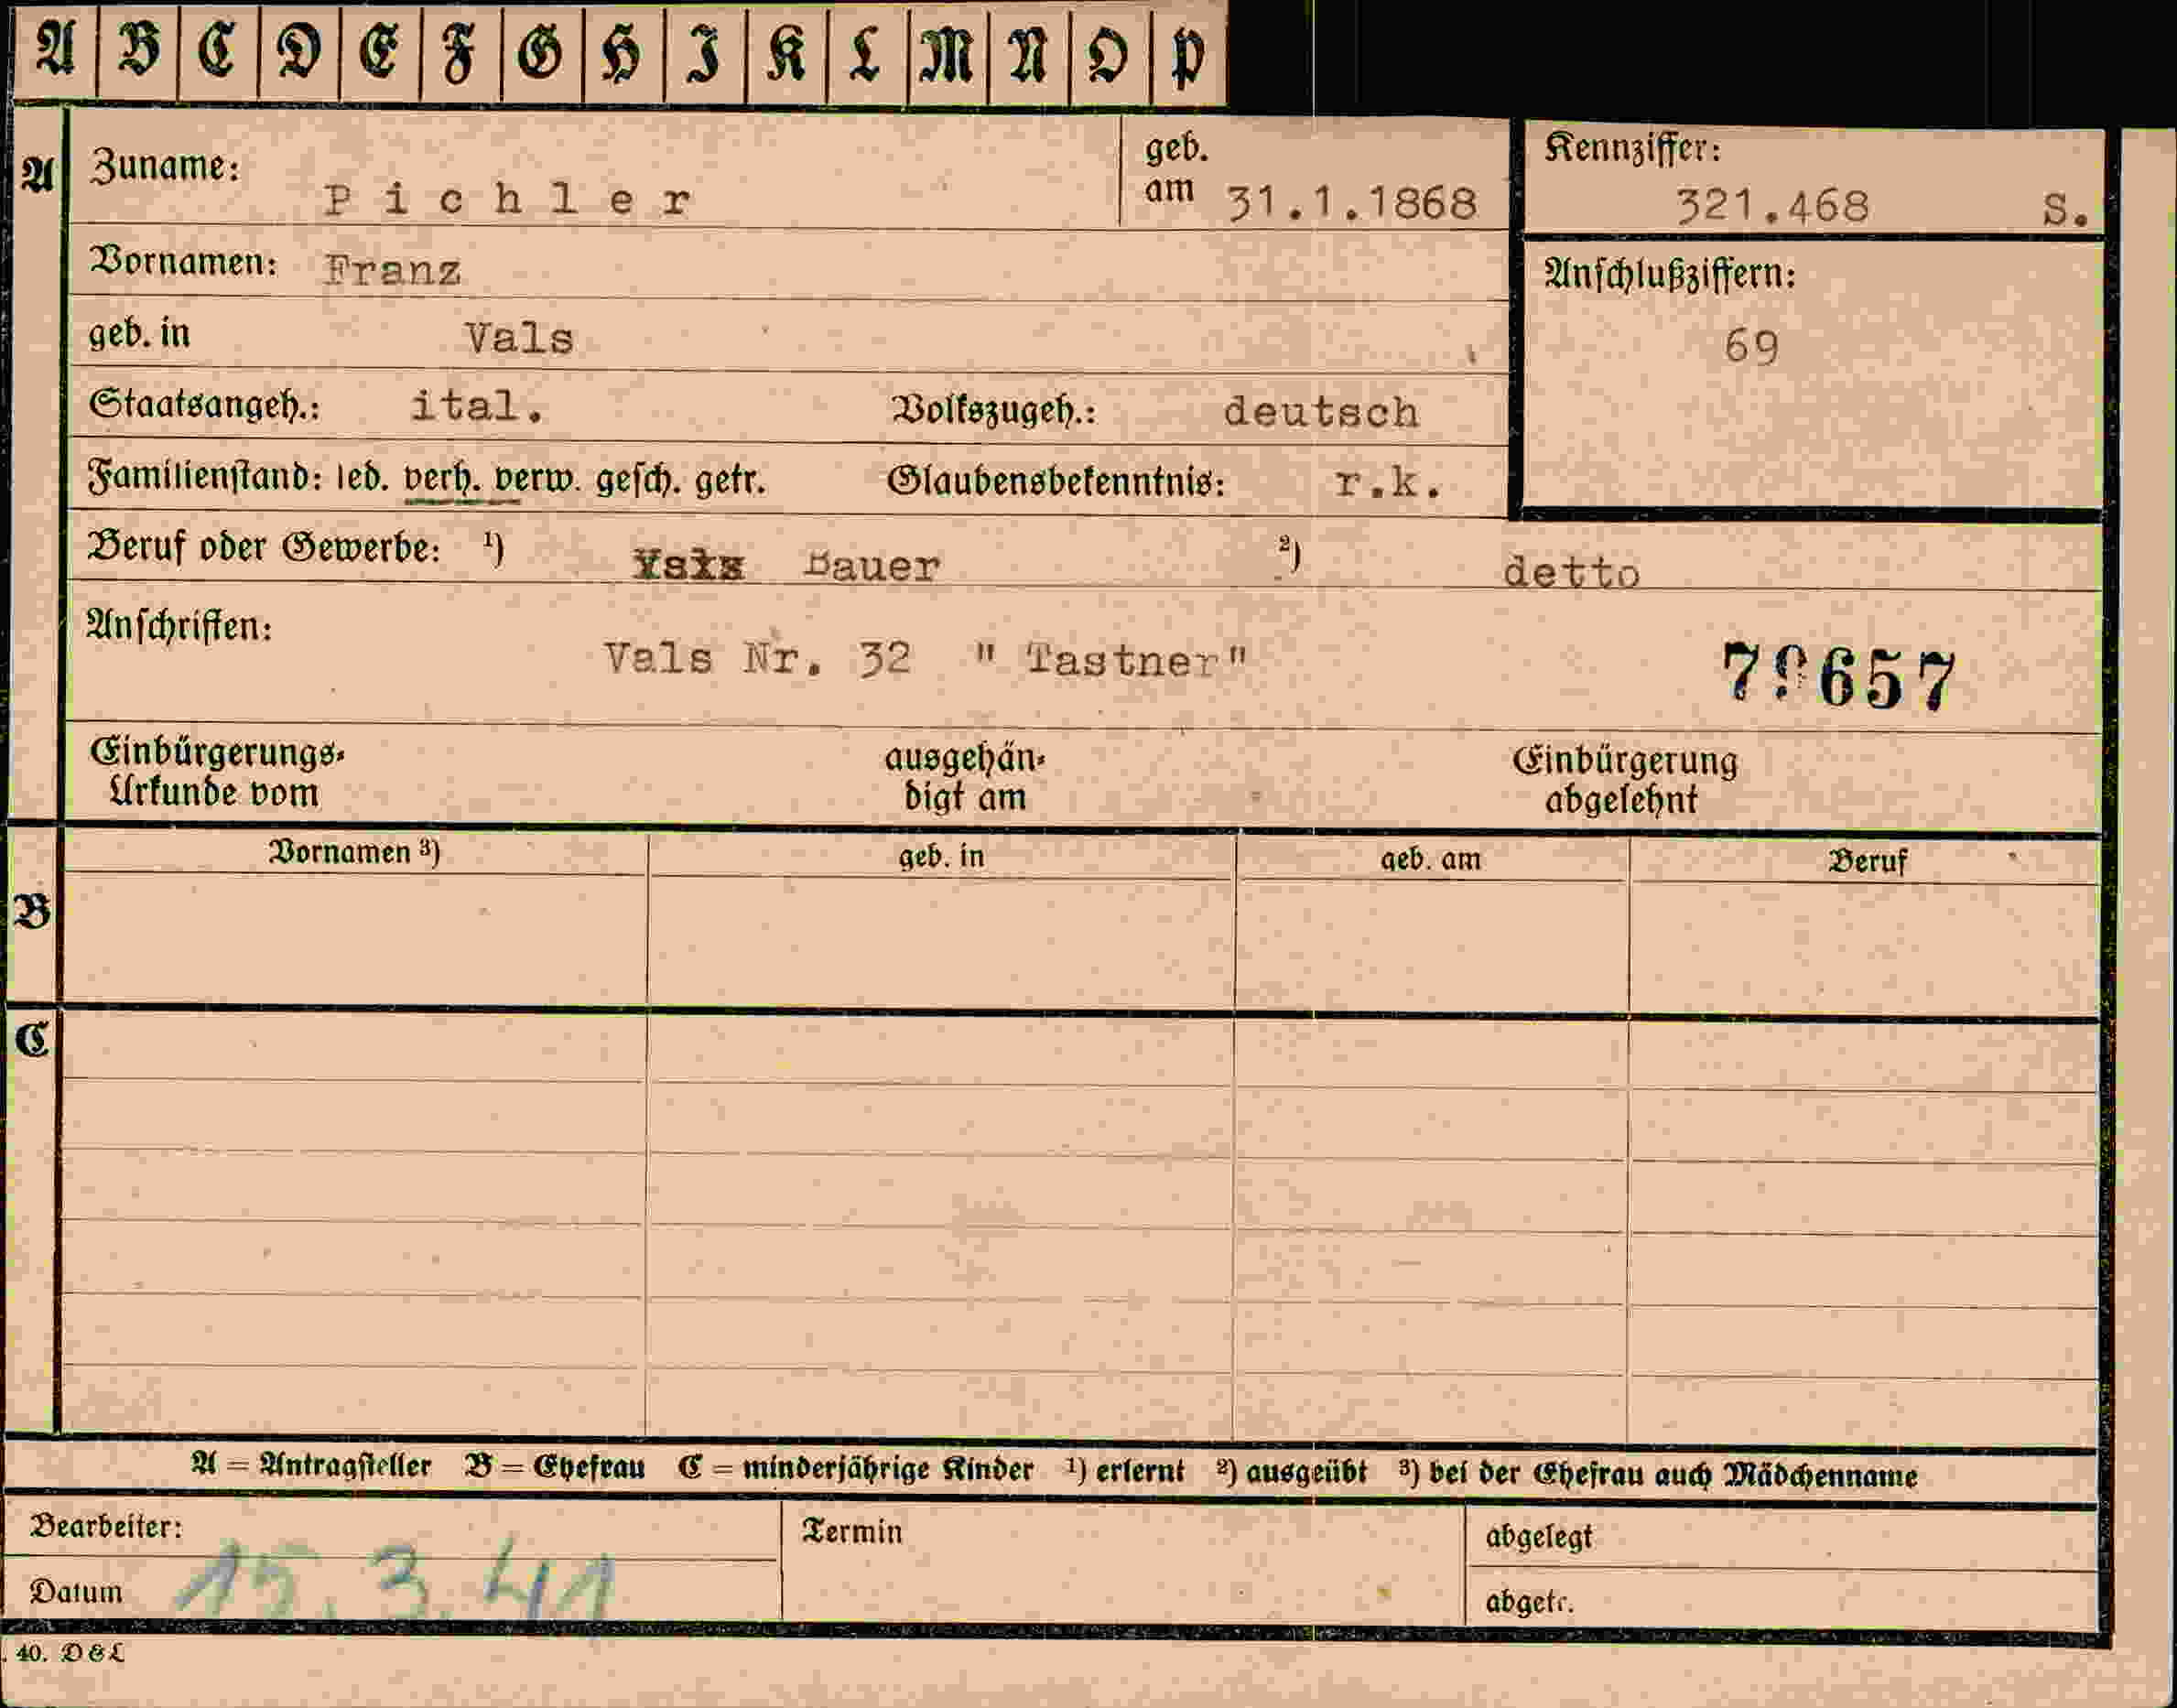 A B C D E F G H I K L M N O P
A Zuname: Pichler geb. am 31.1.1868 Kennziffer: 321.468 S.
Vornamen: Franz Anschlußziffern:
geb. in Vals 69
Staatsangeh.: ital. Volkszugeh.: deutsch
Familienstand: led. verh. verw. gesch. getr. Glaubensbekenntnis: r.k.
Beruf oder Gewerbe: ¹) Bauer ²) detto
Anschriften: Vals Nr. 32 " Tastner"
Einbürgerungs- ausgehän- Einbürgerung
Urkunde vom digt am abgelehnt
Vornamen ³) geb. in geb. am Beruf
B
C
A = Antragsteller B = Ehefrau C = minderjährige Kinder ¹) erlernt ²) ausgeübt ³) bei der Ehefrau auch Mädchenname
Bearbeiter: Termin abgelegt
Datum 15. 3. 41 abgetr.
. 40. D & L